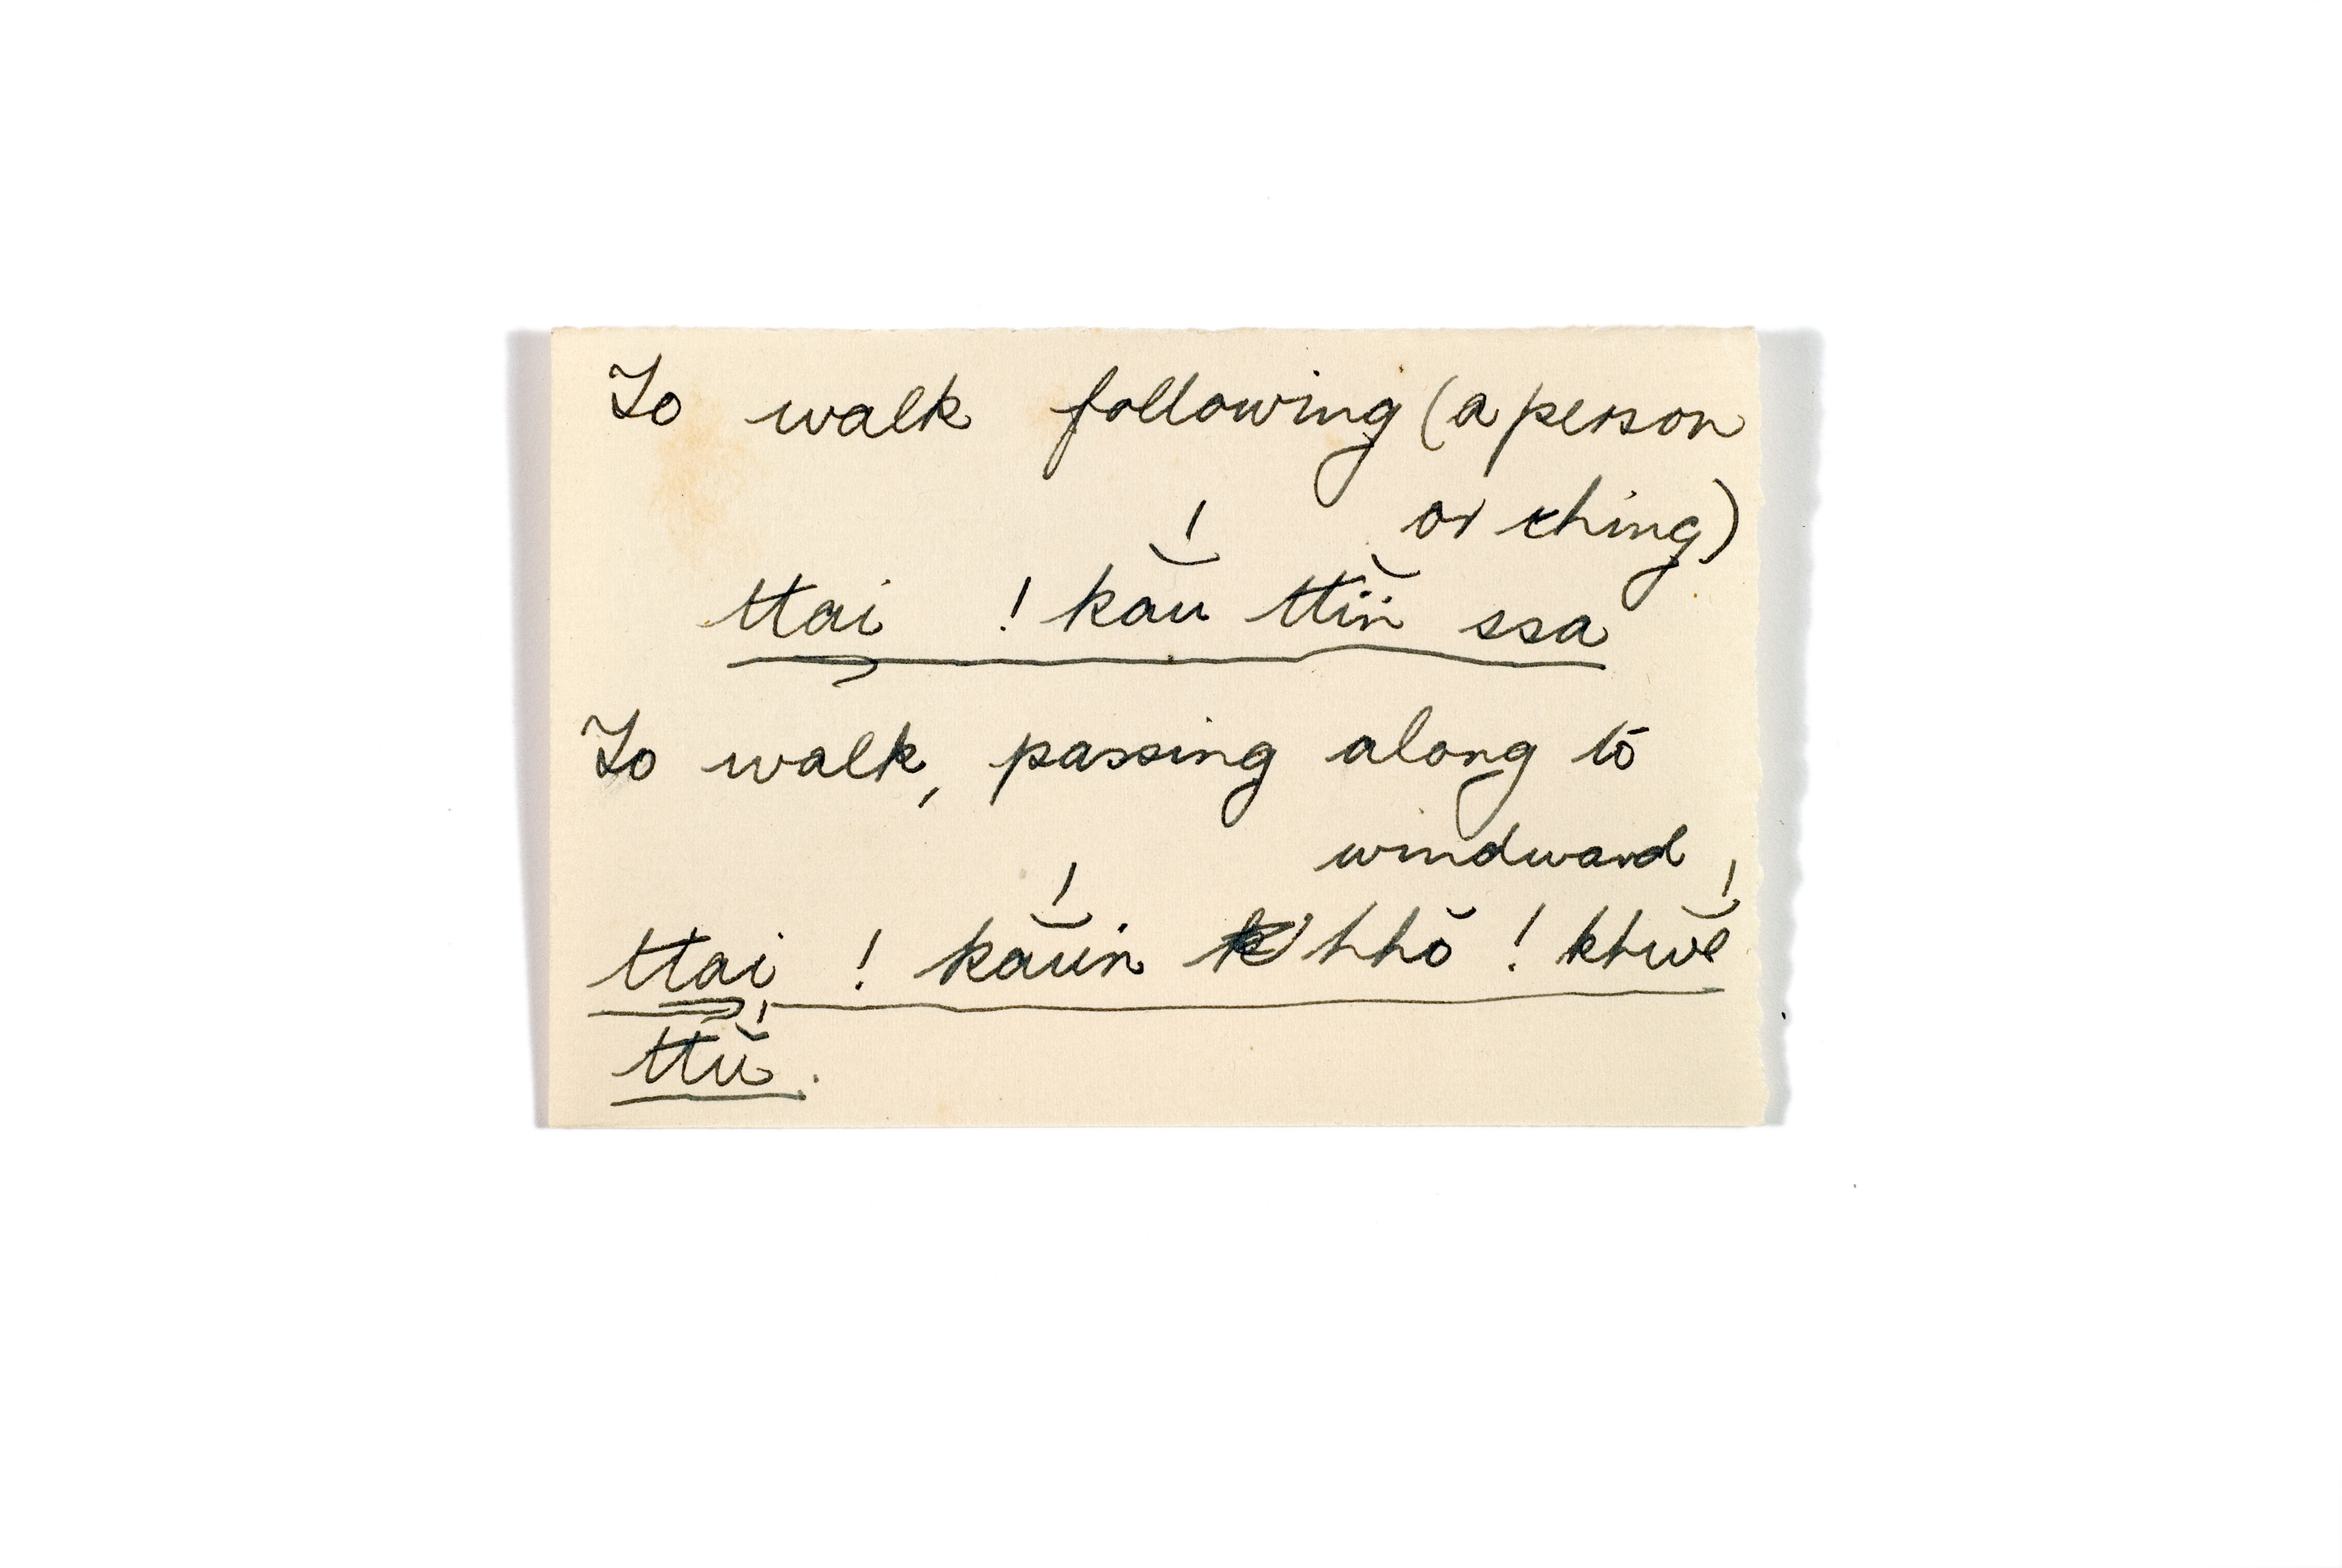 To walk following (a person
or thing)
ttai !kău̍ ttĭïn ssa
To walk, passing along to
windward
ttai !kắuïn k'hhŏ !khwĕ̍
ttŭ̍.